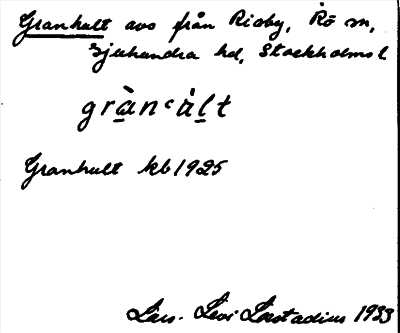 Granhult avs från Risby, Rö sn,
Sjuhundra hd, Stockholms l
gràn‘ált
Granhult kb 1925
Lars-Levi Læstadius 1933